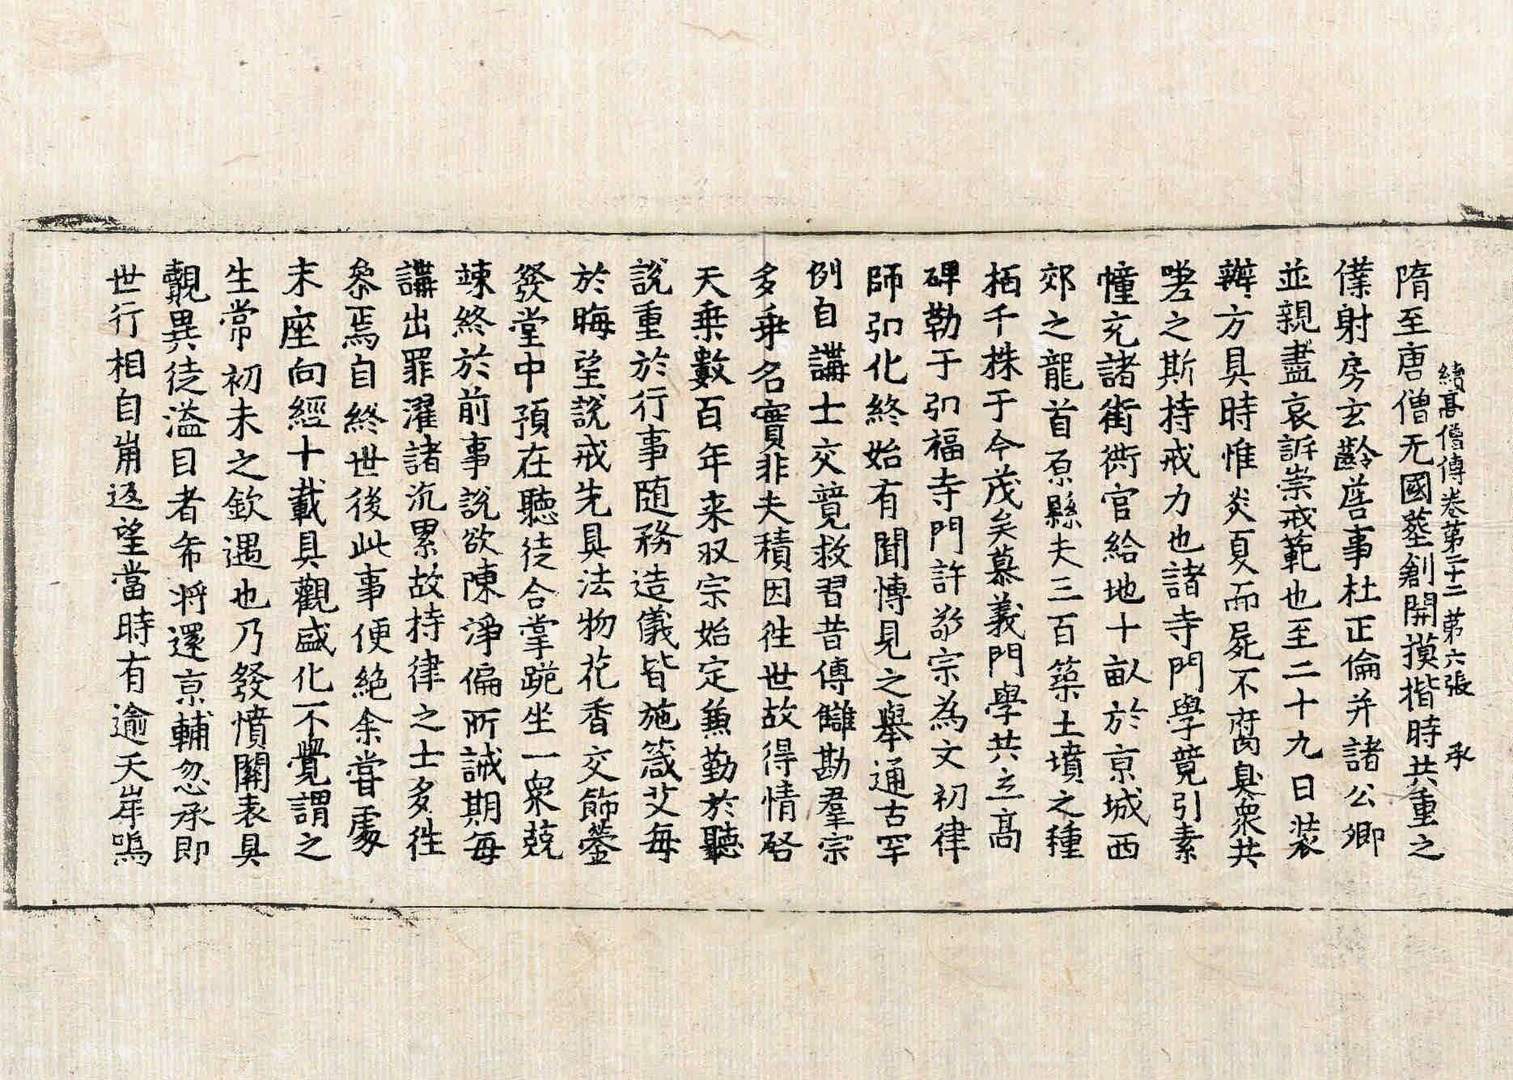 續高僧傳卷第二十二 第六張 承
隋至唐僧无國葬創開摸揩時共重之
僕射房玄齡詹事杜正倫并諸公卿
並親盡哀訴崇戒範也至二十九日裝
辦方具時惟炎夏而屍不腐臭衆共
嗟之斯持戒力也諸寺門學競引素
幢充諸街衖官給地十畝於京城西
郊之龍首原縣夫三百築土墳之種
栢千株于今茂矣慕義門學共立高
碑勒于弘福寺門許敬宗為文初律
師弘化終始有聞博見之舉通古罕
例自講士交競救習昔傳讎勘羣宗
多乖名實非夫積因徃世故得情啓
天乗數百年来収宗始定兼勤於聽
說重於行事随務造儀皆施箴艾每
於晦望說戒先具法物花香交飾鎣
發堂中預在聽徒合掌跪坐一衆兢
竦終於前事說欲陳淨偏所誡期每
講出罪濯諸沉累故持律之士多徃
叅焉自終世後此事便絶余嘗處
末座向經十載具觀盛化不覺謂之
生常初未之欽遇也乃發憤關表具
覿異徒溢目者希将還京輔忽承即
世行相自崩返望當時有逾天岸嗚